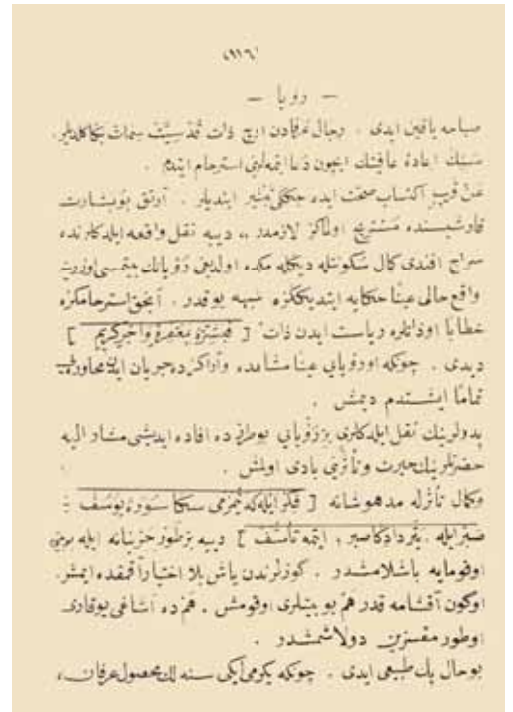 «١١٦»
— رؤيا —
صباحه ياقين ايدى . رجال عرفادن اوچ ذات قدسيت سمات بڭا كلديلر.
سنك اعادهٔ عافيتك ايچون دعا ايتمه لرينى استرحام ايتدم .
عن قريب اكتساب صحت ايده جكڭى تبشير ايتديلر . آرتق بو بشارت
قارشيسنده مستريح اولماكز لازمدر ,, ديیه نقل واقعه ايلدكلرنده
سراج افندى كمال سكونتله ديكله مكده اولديغى رؤيانك بيتمسى اوزرينه
واقع حالى عيناً حكايه ايتديكڭزه شبهه يوقدر . آنجق استرحامكزه
خطاباً او ذاتلره رياست ايدن ذات [ فبشره بمغفرة واجر كريم ]
ديدى . چونكه او رؤيايى عيناً مشاهده و آراكزده جريان ايدن محاوره يى
تماماً ايشتدم ديمش .
پدرلرينك نقل ايلدكلرى بر رؤيايى بوطرزده افاده ايديشى مشار اليه
حضرتلرينك حيرت و تأثرينى بادى اولمش .
وكمال تأثرله مدهوشانه [ فكر ايله كه نمزمى سكا سورهٔ يوسف :
صبر ايله ، ايتمه تأسف ] ديیه بر طور حزينانه ايله بونى
اوقومايه باشلامشدر . كوزلرندن ياش بلا اختيار آقمقده ايمش.
اوكون آقشامه قدر هم بو بيتلرى اوقومش ، هم ده آشاغى يوقارى
اوطور مقسزين دولاشمشدر .
بوحال پك طبيعى ايدى . چونكه يكرمى ايكى سنه لك محصول عرفان ،